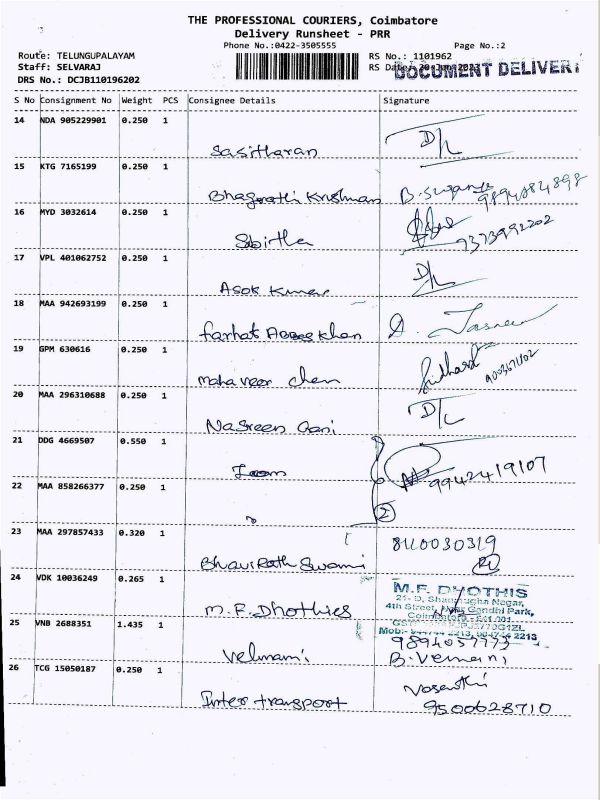 THE PROFESSIONAL COURIERS, Coimbatore
Delivery Runsheet - PRR
Phone No.:0422-3505555
Page No.:2
Route: TELUNGUPALAYAM
RS No.: 1101962
Staff: SELVARAJ
RS Date:
DOCUMENT DELIVERY
DRS No.: DCJB110196202
S No Consignment No Weight PCS Consignee Details Signature
14 NDA 905229901 0.250 1
Sasitharan D/L
15 KTG 7165199 0.250 1
Bhagirathi Krishnan B. 9894884898
16 MYD 3032614 0.250 1
Sbitha 7373992202
17 VPL 401062752 0.250 1
Asok Kumar D/L
18 MAA 942693199 0.250 1
Farhat Khan Jasneen
19 GPM 630616 0.250 1
Mahaveer Chem
20 MAA 296310688 0.250 1
Nasreen Gani D/L
21 DDG 4669507 0.550 1
9942419107
22 MAA 858266377 0.250 1
2
23 MAA 297857433 0.320 1
8110030319
Bhavirath Swami
24 VDK 10036249 0.265 1
M.F. Dhothies
M.F. DHOTHIS
21-D, Shanmugha Nagar,
4th Street, Gandhi Park,
Coimbatore - 641 001.
25 VNB 2688351 1.435 1
9894057773
Velmani B. Vemani
26 TCG 15050187 0.250 1
Vasanthi
Inter transport 9500628710